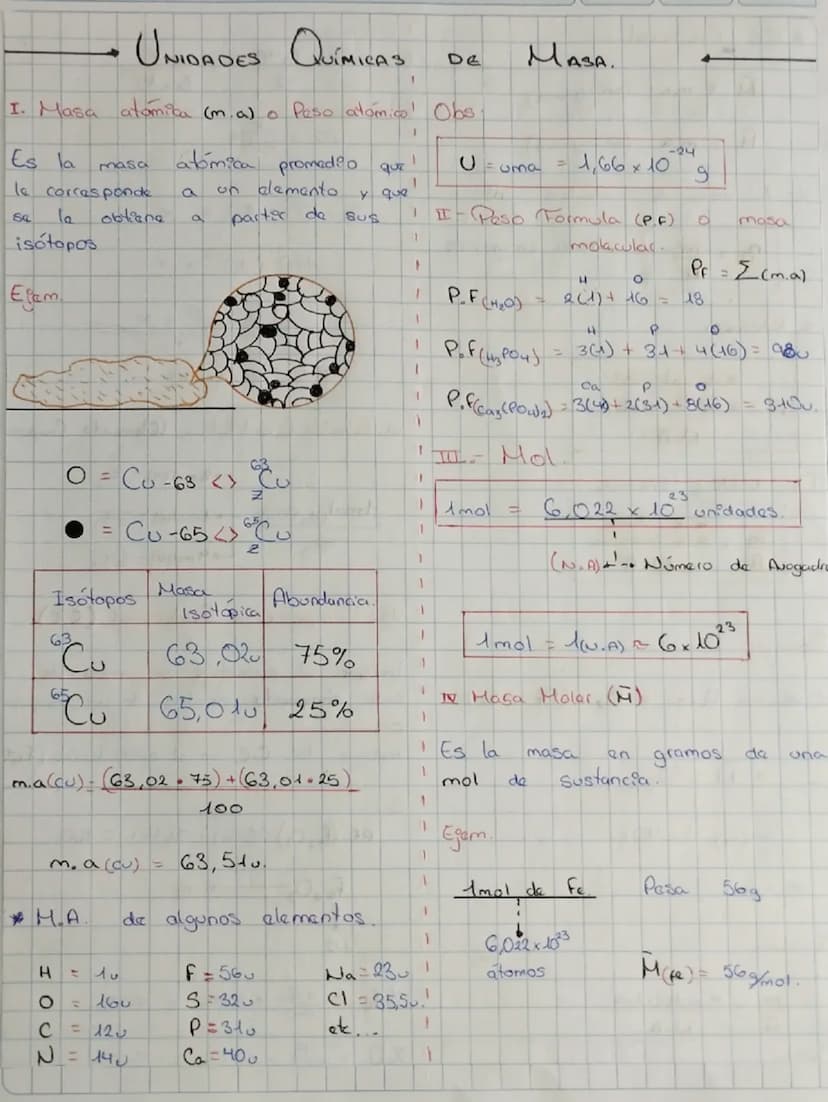 UNIDADES QUÍMICAS DE MASA.
I. Masa atómica (m.a) o Peso atómico
Es la masa atómica promedio que
le corresponde a un elemento y que
se la obtiene a partir de sus
isótopos
Ejem.
O = Cu-63 <> ⁶³Cu
Z
● = Cu-65 <> ⁶⁵Cu
Z
Isótopos Masa Isotópica Abundancia.
⁶³Cu 63,02u 75%
⁶⁵Cu 65,01u 25%
m.a(cu) = (63,02 • 75) + (63,01 • 25)
100
m.a(cu) = 63,51u.
* M.A. de algunos elementos.
H = 1u F = 56u Na = 23u
O = 16u S = 32u Cl = 35,5u.
C = 12u P = 31u etc...
N = 14u Ca = 40u
Obs
U = uma = 1,66 x 10⁻²⁴ g
II - Peso Formula (P.F) o masa
molecular.
PF = Σ(m.a)
H O
P.F(H₂O) = 2(1) + 16 = 18
H P O
P.F(H₃PO₄) = 3(1) + 31 + 4(16) = 98u
Ca P O
P.F(Ca₃(PO₄)₂) = 3(4) + 2(31) + 8(16) = 310u.
III.- Mol.
1mol = 6,022 x 10²³ unidades.
(N.A) → Número de Avogadro
1mol = 1(N.A) ≈ 6 x 10²³
IV Masa Molar. (M̄)
Es la masa en gramos de una
mol de sustancia.
Ejem.
1mol de Fe Pesa 56g
6,022 x 10²³
átomos M̄(Fe) = 56g/mol.